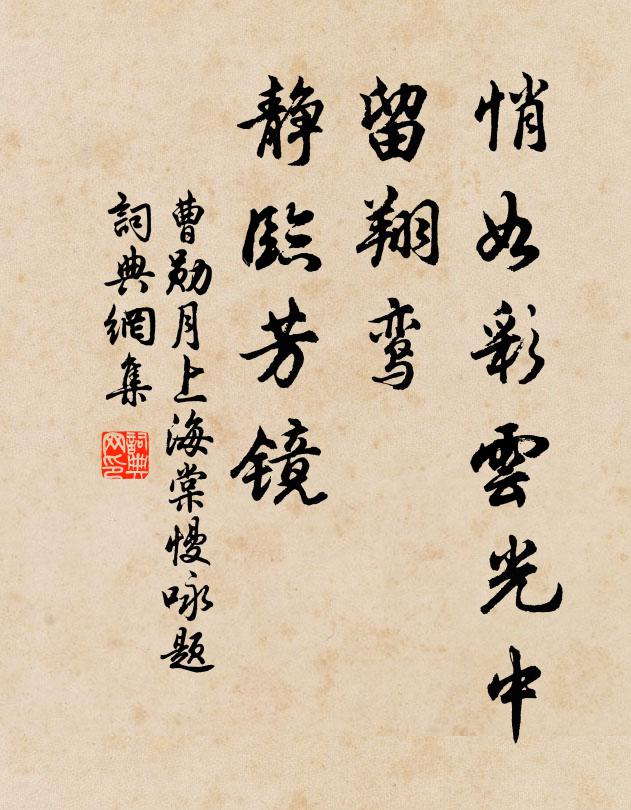 悄如彩雲光中
留翔鸾
静臨芳镜
曹勋月上海棠慢咏题
詞典網集
詞典网印